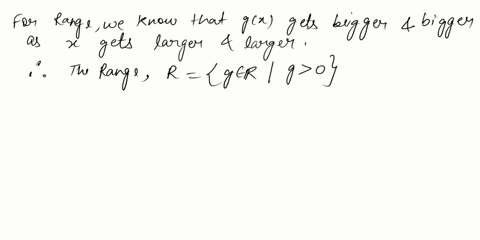 For Range, we know that g(x) gets bigger & bigger
as x gets larger & larger.
∴ The Range, R = {g∈R | g>0}